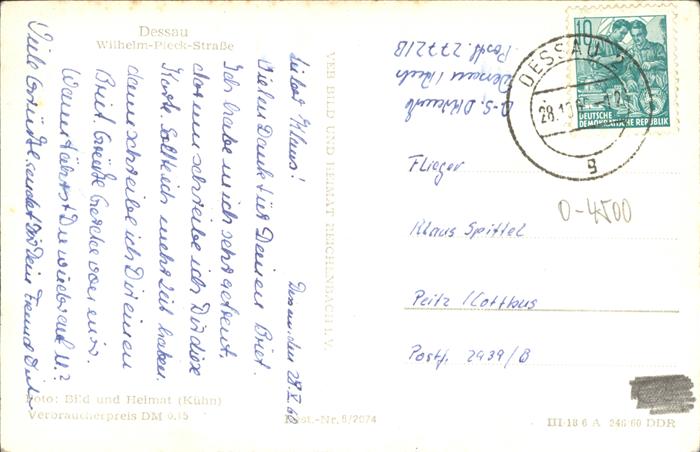 Dessau
Wilhelm-Pieck-Straße
Dessau, den 28.X.60
Lieber Klaus!
Vielen Dank für Deinen Brief.
Ich habe mich sehr gefreut.
darum schreibe ich Dir diese
Karte. Sollte ich mehr Zeit haben,
dann schreibe ich Dir einen
Brief. Grüße Gerda von mir.
Wann fährst Du wieder auf U.?
Viele Grüße sendet Dir Dein Freund
VEB BILD UND HEIMAT REICHENBACH I. V.
Foto: Bild und Heimat (Kühn)
Verbraucherpreis DM 0,15
Best.-Nr. 8/2074
Dessau
Postf. 2772/B
10
DEUTSCHE
DEMOKRATISCHE REPUBLIK
DESSAU 2
28.10
g
Flieger
0-4500
Klaus Spittel
Peitz / Cottbus
Postf. 2939/B
III-18-6 A 246/60 DDR